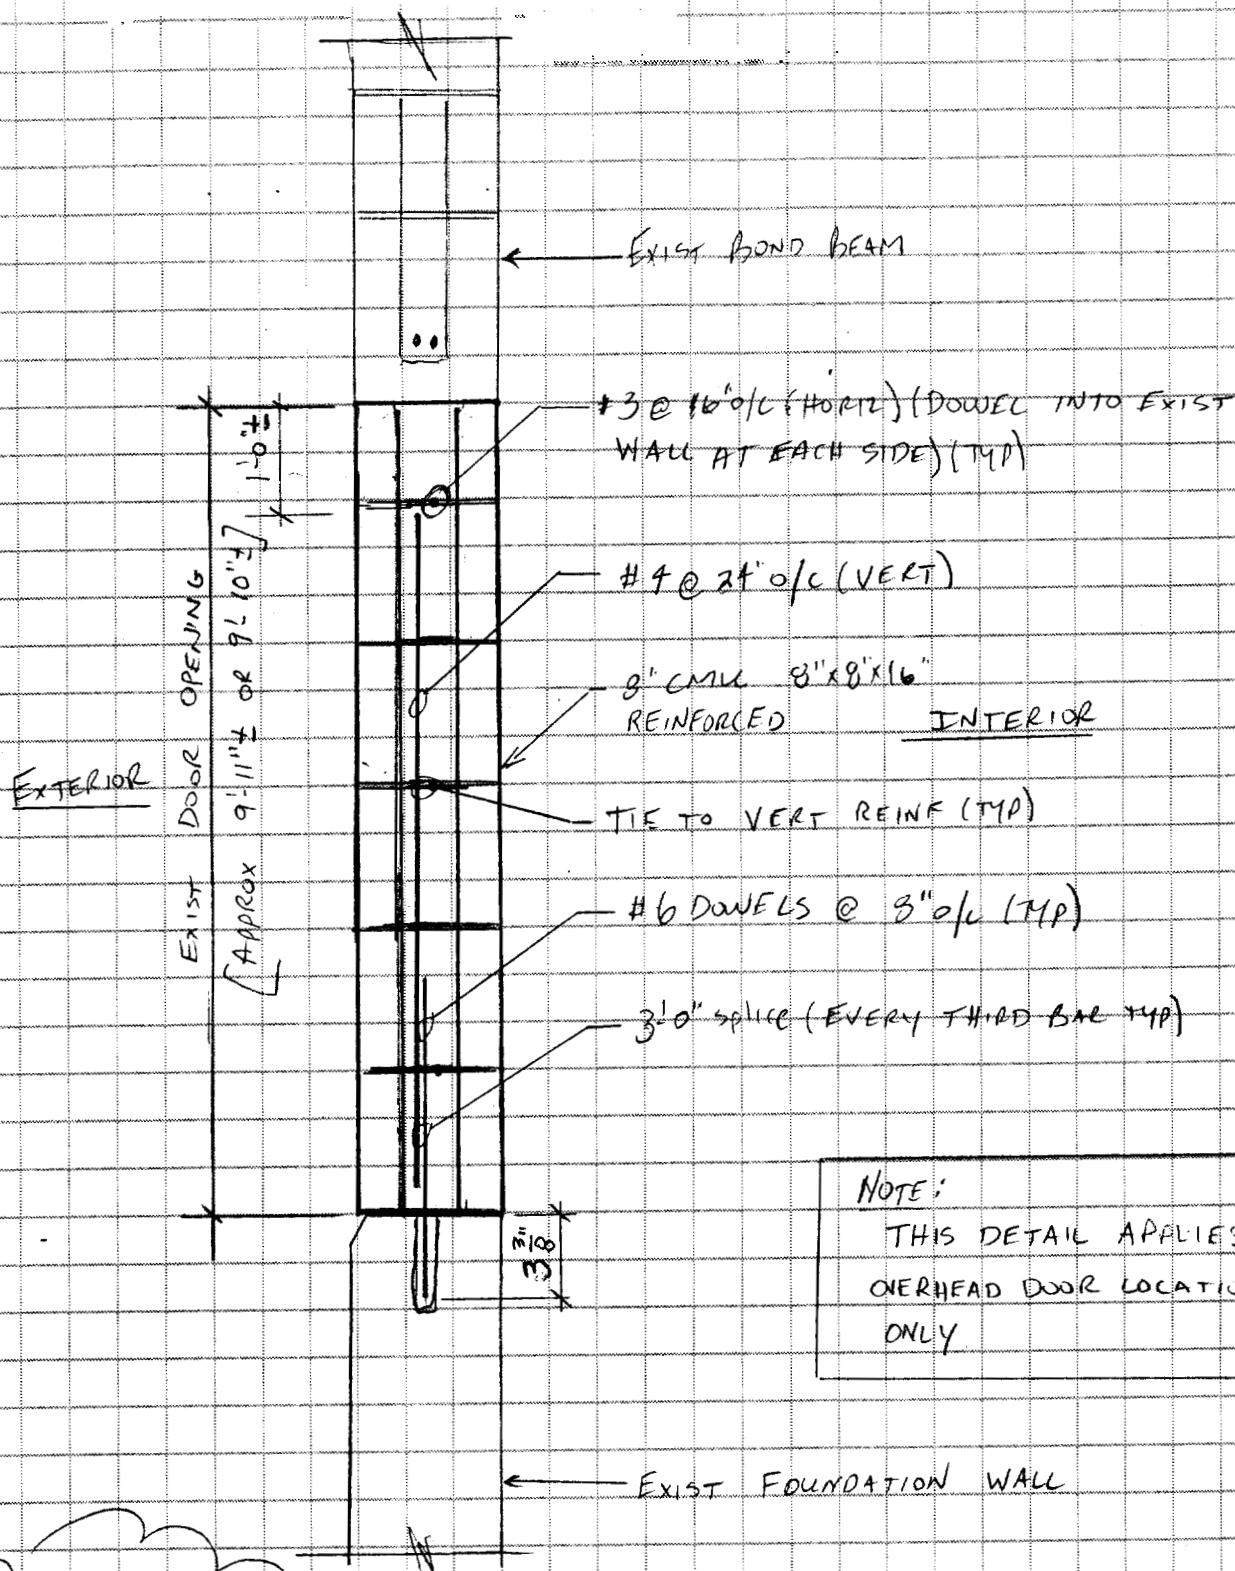 EXIST BOND BEAM
#3 @ 16" o/c (HORIZ) (DOWEL INTO EXIST
WALL AT EACH SIDE) (TYP)
1'-0"±
#4 @ 24" o/c (VERT)
8" CMU 8"x8"x16"
REINFORCED
INTERIOR
EXTERIOR
EXIST DOOR OPENING
[APPROX 9'-11"± OR 9'-10"±]
TIE TO VERT REINF (TYP)
#6 DOWELS @ 8" o/c (TYP)
3'-0" splice (EVERY THIRD BAR TYP)
3 3/8"
NOTE:
THIS DETAIL APPLIES
OVERHEAD DOOR LOCATIO
ONLY
EXIST FOUNDATION WALL